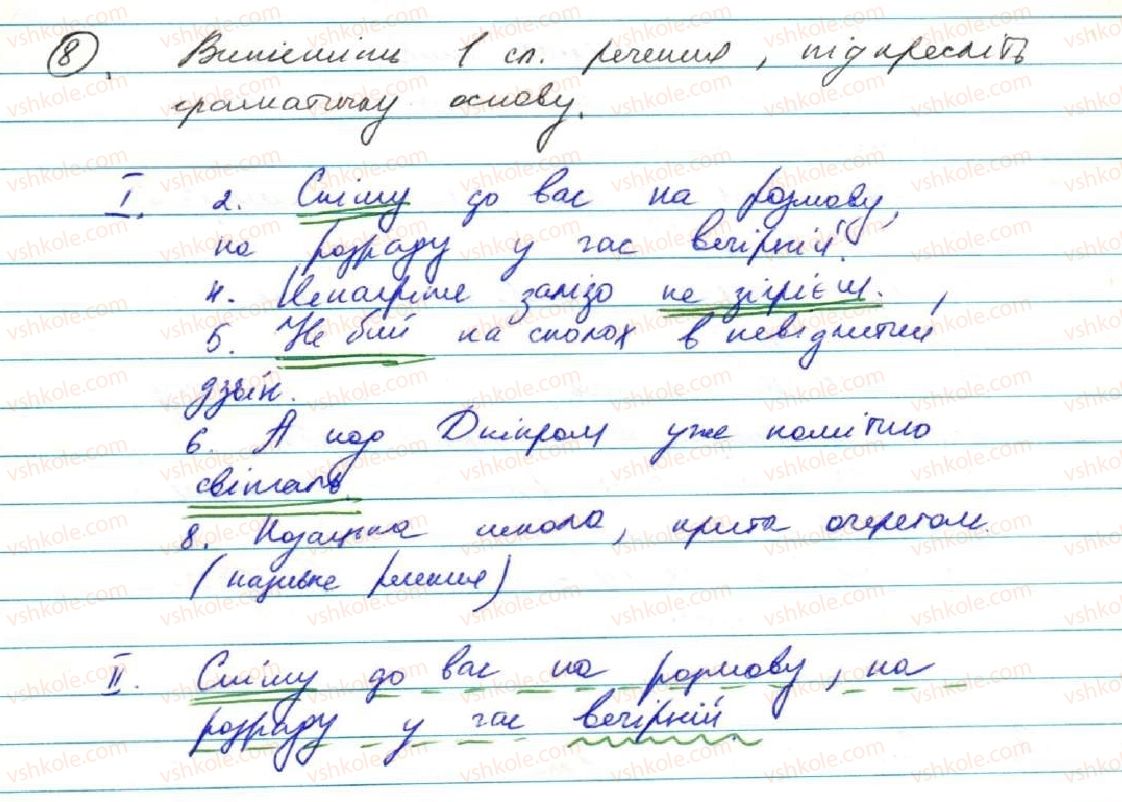 8. Випишіть 1 ск. речення, підкресліть
граматичну основу.
I. 2. Спішу до вас на розмову,
на розраду у час вечірній.
4. Ненагріте залізо не зігнеш.
5. Не бий на сполох в невідлитий
дзвін.
6. А над Дніпром уже помітно
світать.
8. Козацька школа, крита очеретом.
(називне речення)
II. Спішу до вас на розмову, на
розраду у час вечірній